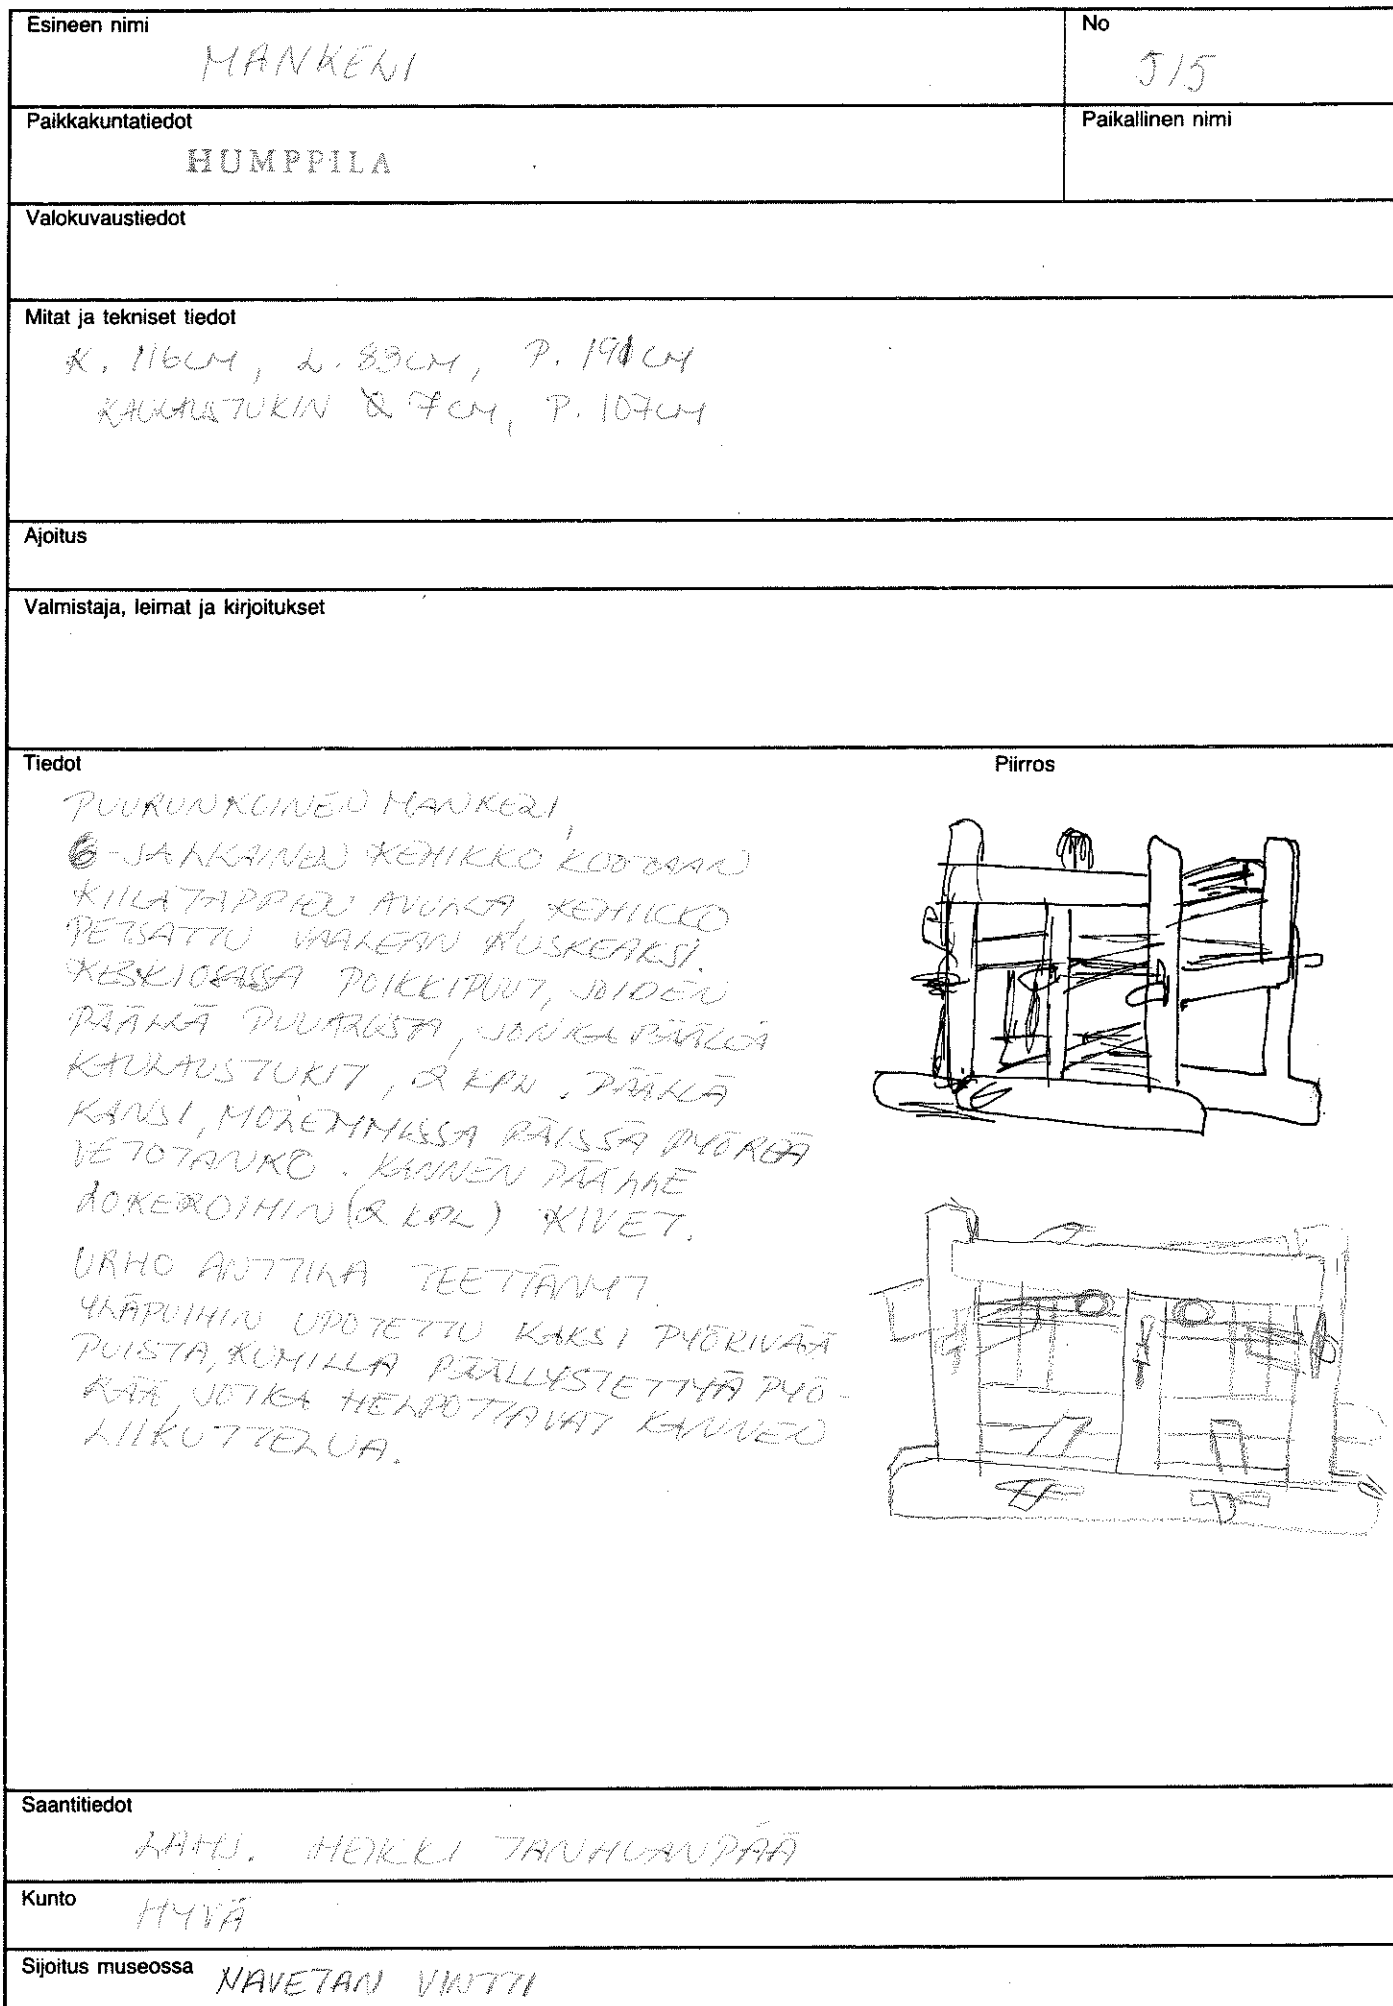 Esineen nimi
MANKELI
No
515
Paikkakuntatiedot
HUMPPILA
Paikallinen nimi
Valokuvaustiedot
Mitat ja tekniset tiedot
K. 116CM, L. 83CM, P. 191CM
KAULAUSTUKIN Ø 7CM, P. 107CM
Ajoitus
Valmistaja, leimat ja kirjoitukset
Tiedot
Piirros
PUURUNKOINEN MANKELI,
6-JALKAINEN KEHIKKO KOOTAAN
KIILATAPPIEN AVULLA, KEHIKKO
PETSATTU VAALEAN RUSKEAKSI.
KESKIOSASSA POIKKIPUUT, JOIDEN
PÄÄLLÄ PUUALUSTA, JONKA PÄÄLLÄ
KAULAUSTUKIT, 2 KPL. PÄÄLLÄ
KANSI, MOLEMMISSA PÄISSÄ PYÖREÄ
VETOTANKO. KANNEN PÄÄLLE
LOKEROIHIN (2 KPL) KIVET.
URHO ANTTILA TEETTÄNYT.
YLÄPUIHIN UPOTETTU KAKSI PYÖRIVÄÄ
PUISTA, KUMILLA PÄÄLLYSTETTYÄ PYÖ-
RÄÄ, JOTKA HELPOTTAVAT KANNEN
LIIKUTTELUA.
Saantitiedot
LAHJ. HEIKKI TANHUANPÄÄ
Kunto
HYVÄ
Sijoitus museossa
NAVETAN VINTTI